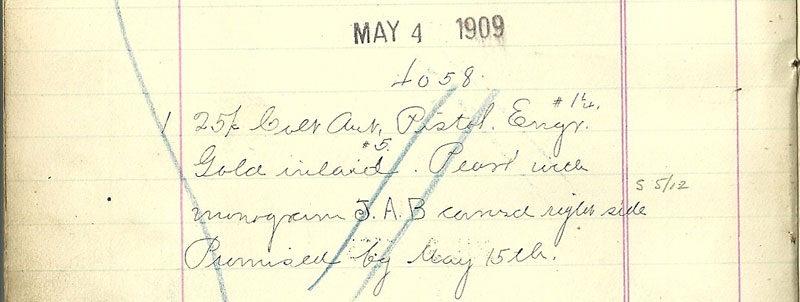 MAY 4 1909
4058.
1 25/c Colt Aut. Pistol. Engr. #14.
Gold inlaid #5. Pearl with
monogram J.A.B carved right side
S 5/12
Promised by May 15th.